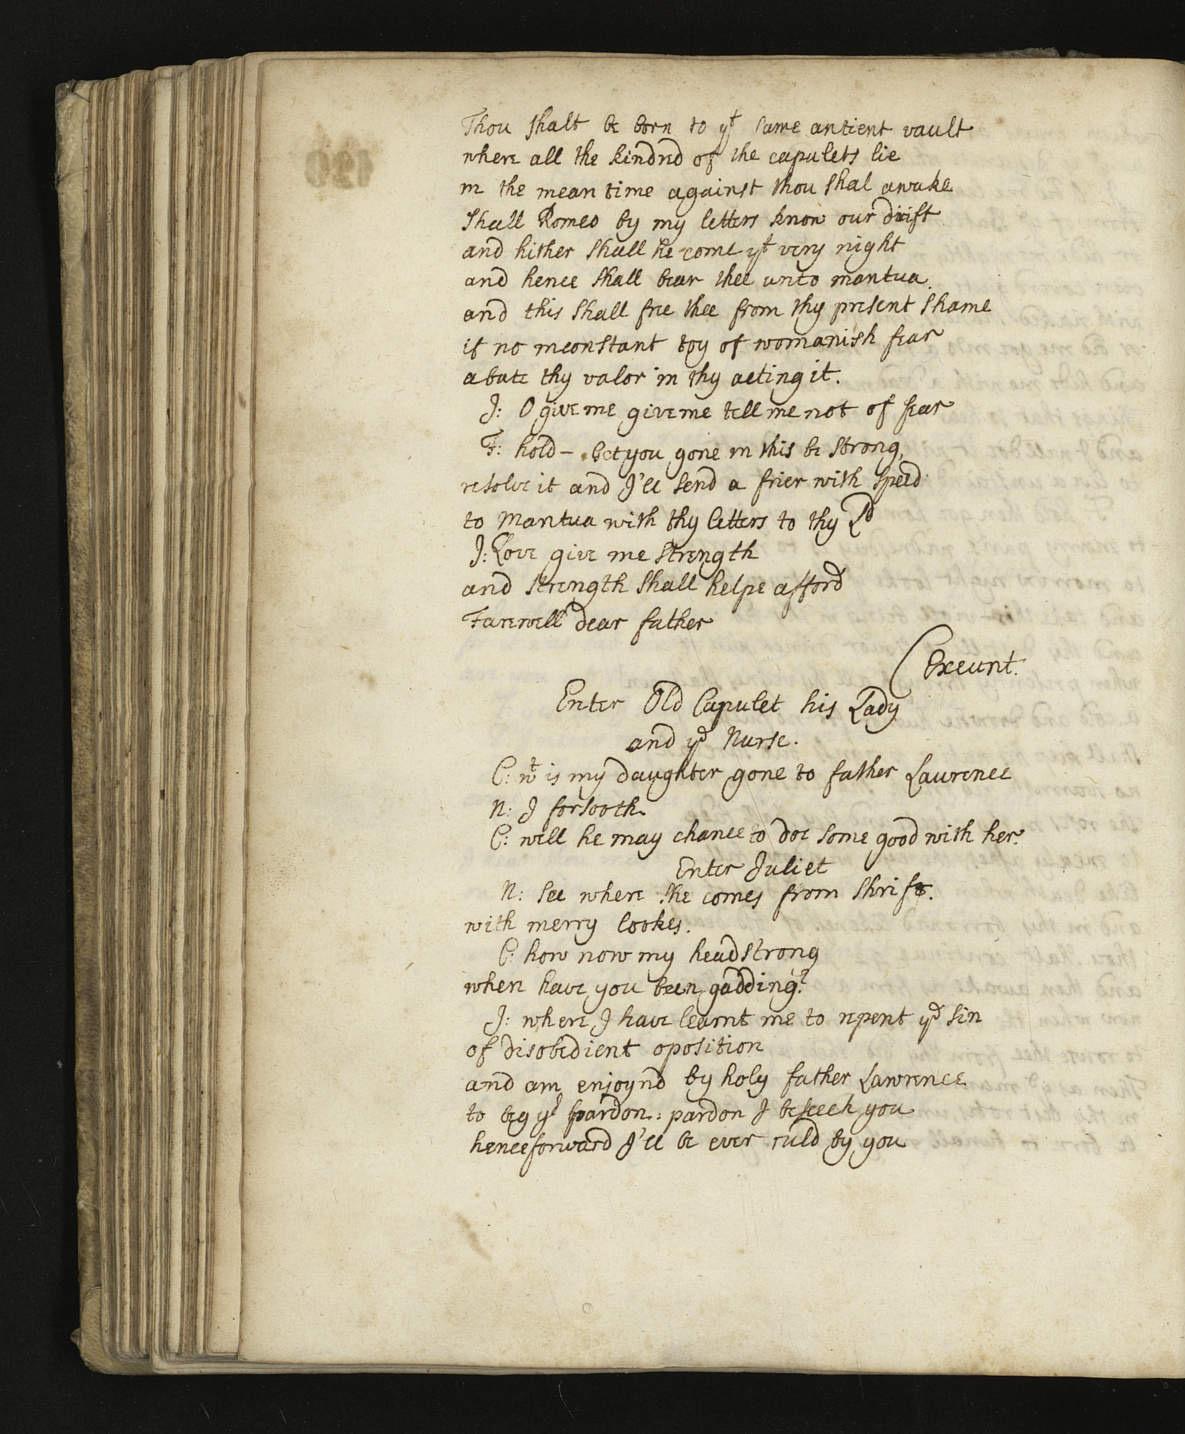 Thou shalt be born to yt same antient vault
where all the kindred of the capulets lie
in the mean time against thou shal awake
shall Romeo by my letters know our drift
and hither shall he come yt very night
and hence shall bear thee unto mantua.
and this shall free thee from thy present shame
if no inconstant toy of womanish fear
abate thy valor in thy acting it.
J: O give me give me tell me not of fear
F: hold – get you gone in this be strong,
resolve it and I'll send a frier with speed
to Mantua with thy letters to thy Ld
J: Love give me strength
and strength shall helpe afford
Farewell dear father
(Exeunt.
Enter Old Capulet his Lady
and ye Nurse.
C: wt is my daughter gone to father Laurence
N: I forsooth.
C: well he may chance to doe some good with her.
Enter Juliet
N: See where she comes from shrift.
with merry lookes.
C: how now my headstrong
where have you been gadding?
J: where I have learnt me to repent ye sin
of disobedient oposition
and am enjoynd by holy father Lawrence
to beg yr pardon: pardon I beseech you
henceforward I'll be ever ruld by you